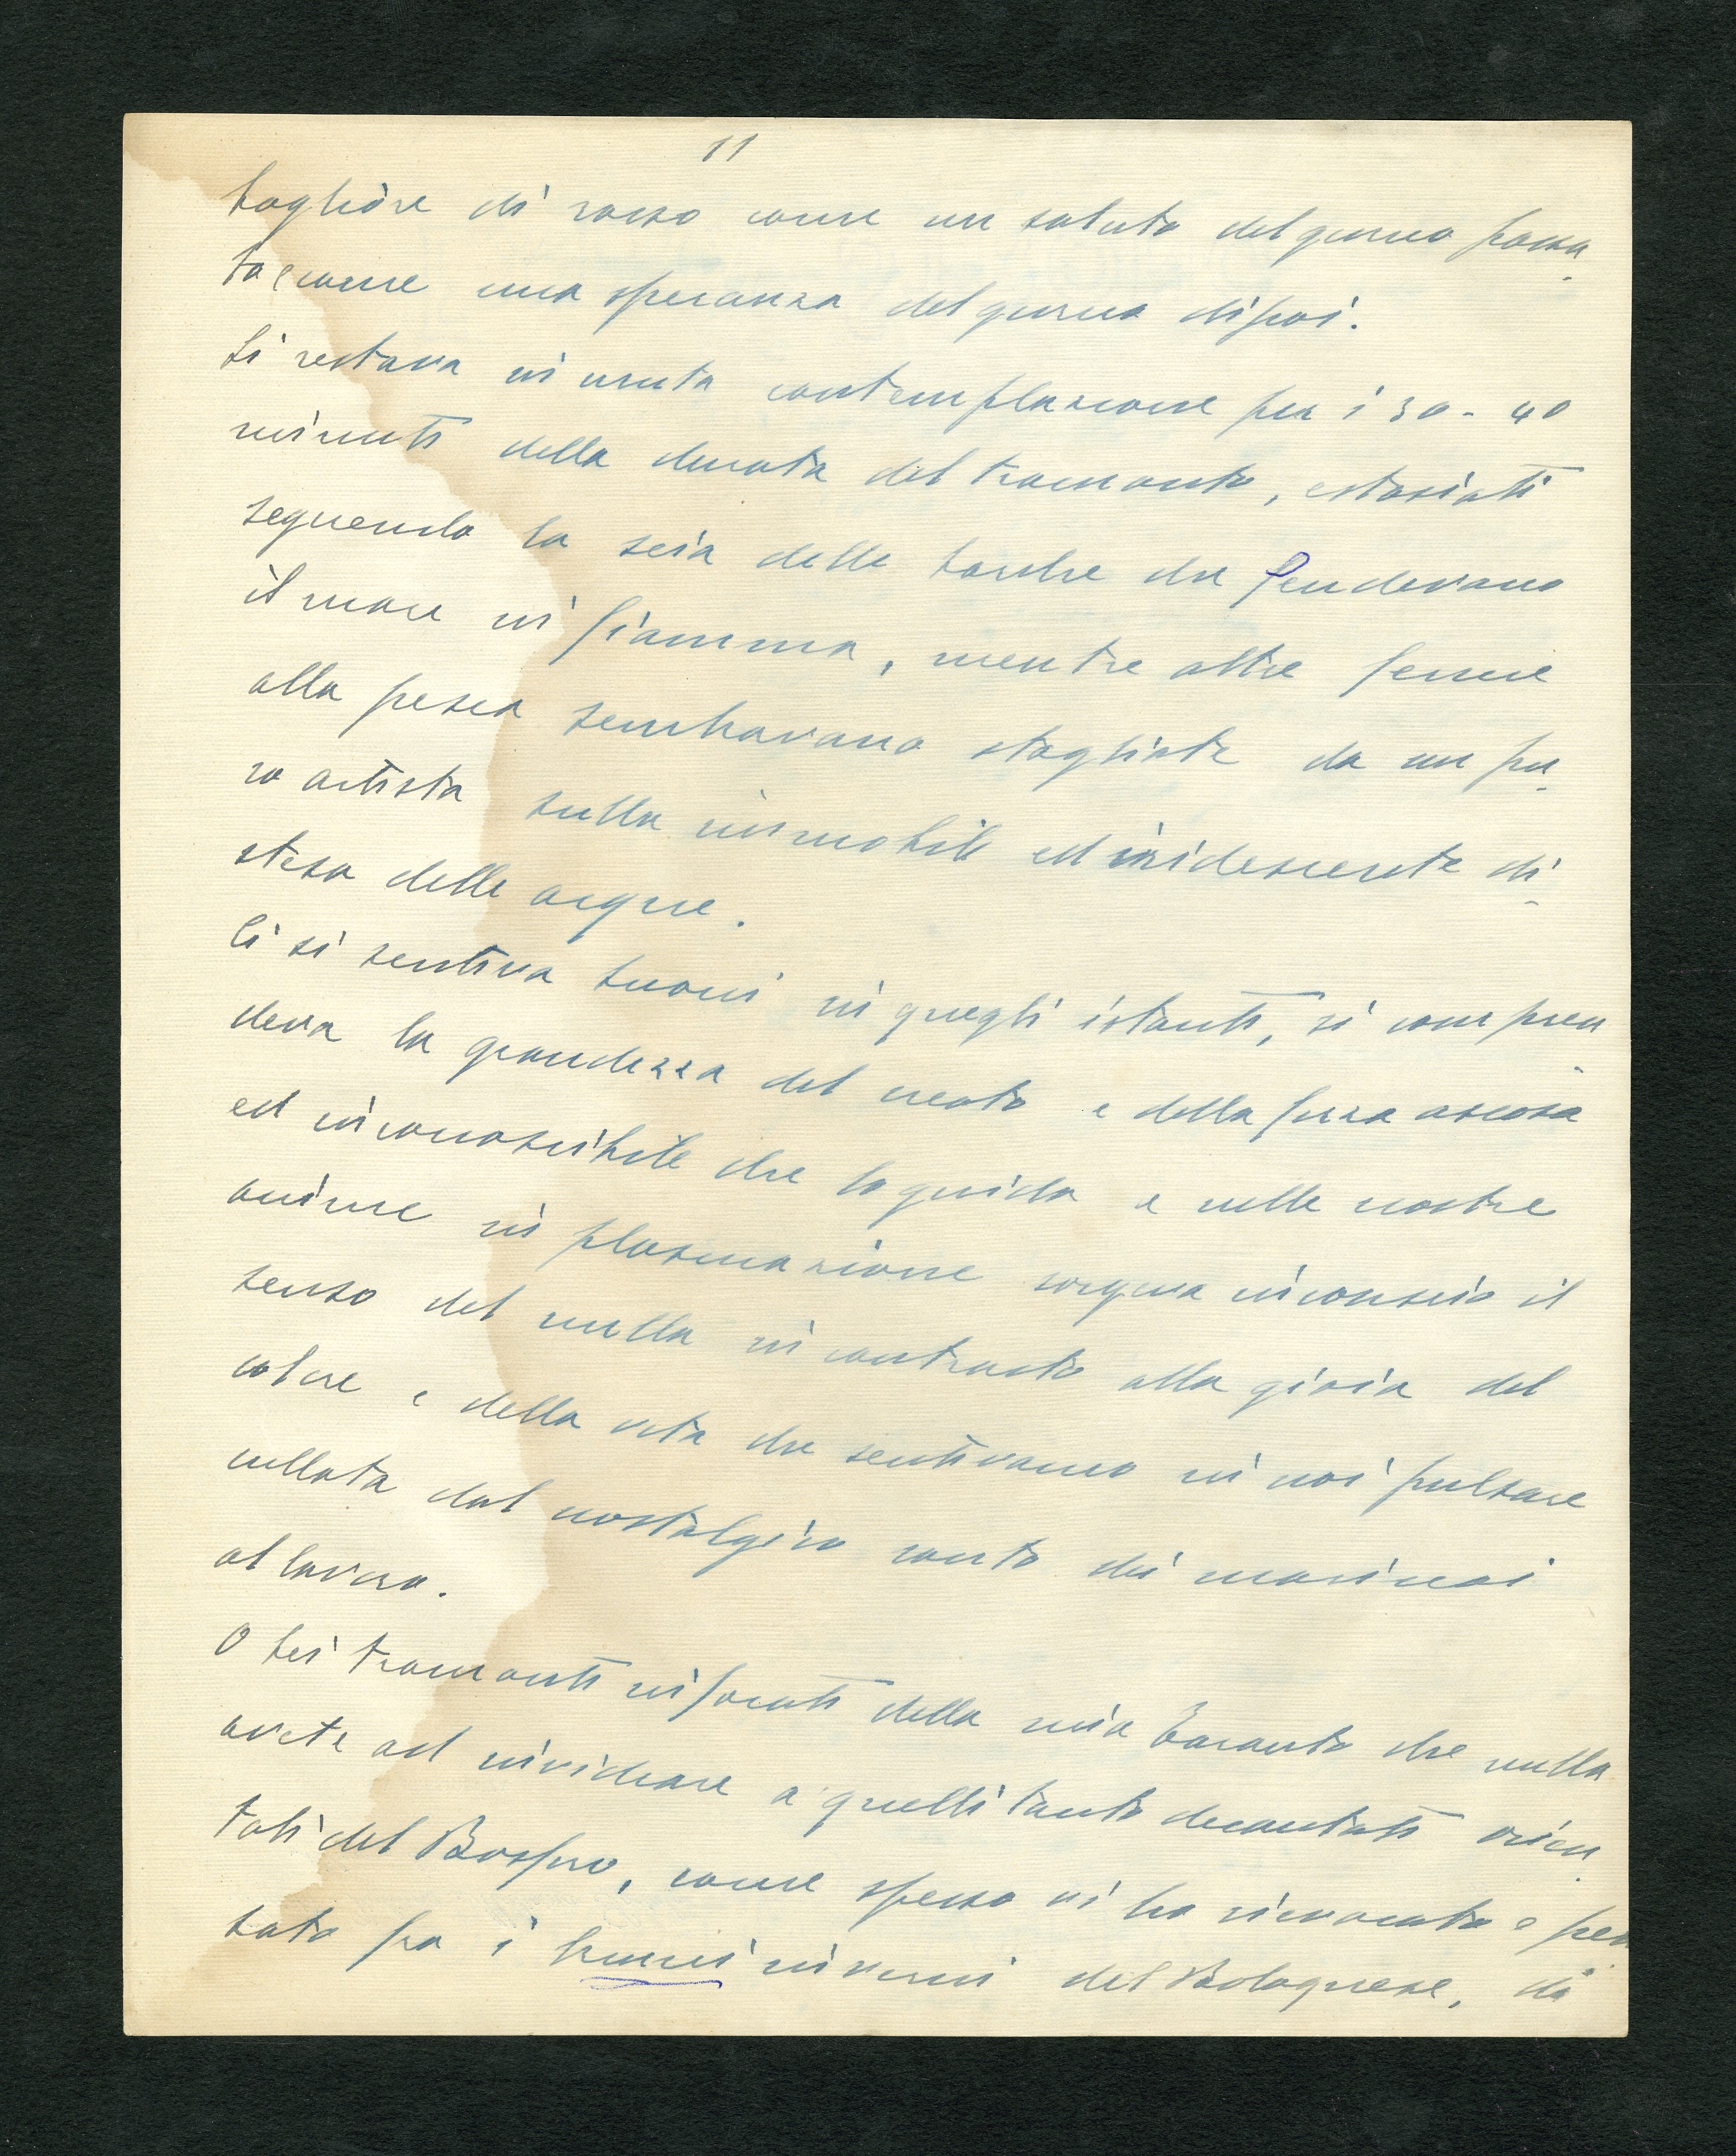 11
bagliore di rosso come un saluto del giorno passa
to e come una speranza del giorno dipoi.
Si restava in muta contemplazione per i 30 - 40
minuti della durata del tramonto, estasiati
seguendo la scia delle barche che fendevano
il mare in fiamma, mentre altre ferme
alla pesca sembravano stagliate da un pu
ro artista sulla immobile ed iridescente di
stesa delle acque.
Ci si sentiva buoni in quegli istanti, si compren
deva la grandezza del creato e della forza ascosa
ed inconoscibile che lo guida e nelle nostre
anime in plasmazione sorgeva inconscio il
senso del nulla in contrasto alla gioia del
colore e della vita che sentivamo in noi pulsare
cullata dal nostalgico canto dei marinai
al lavoro.
O bei tramonti infocati della mia Taranto che nulla
avete ad invidiare a quelli tanto decantati orien
tali del Bosforo, come spesso vi ho rievocato e pen
sato fra i brumosi inverni del Bolognese, di